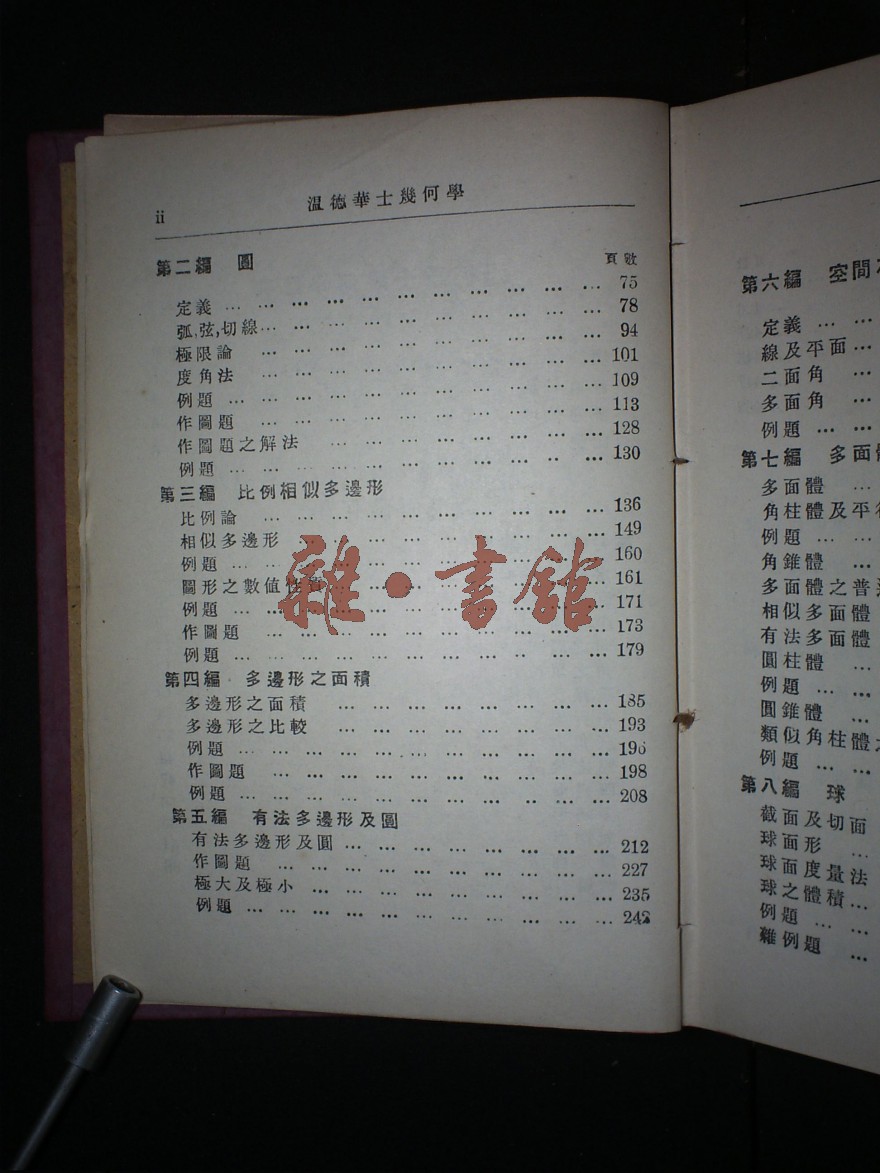 ii 溫德華士幾何學
第二編 圓 頁數
定義 … … … … … … … … … … … 75
弧,弦,切線… … … … … … … … … … 78
極限論 … … … … … … … … … … 94
度角法 … … … … … … … … … … 101
例題 … … … … … … … … … … … 109
作圖題 … … … … … … … … … … 113
作圖題之解法 … … … … … … … … 128
例題 … … … … … … … … … … … 130
第三編 比例相似多邊形
比例論 … … … … … … … … … … 136
相似多邊形 … … … … … … … … … 149
例題 … … … … … … … … … … … 160
圖形之數值性質 … … … … … … … … 161
例題 … … … … … … … … … … … 171
作圖題 … … … … … … … … … … 173
例題 … … … … … … … … … … … 179
第四編 多邊形之面積
多邊形之面積 … … … … … … … … 185
多邊形之比較 … … … … … … … … 193
例題 … … … … … … … … … … … 196
作圖題 … … … … … … … … … … 198
例題 … … … … … … … … … … … 208
第五編 有法多邊形及圓
有法多邊形及圓 … … … … … … … … 212
作圖題 … … … … … … … … … … 227
極大及極小 … … … … … … … … … 235
例題 … … … … … … … … … … …
雜·書館
第六編 空間
定義 … …
線及平面 …
二面角 …
多面角 …
例題 … …
第七編 多面
多面體 …
角柱體及平
例題 … …
角錐體 …
多面體之普
相似多面體
有法多面體
圓柱體 …
例題 … …
圓錐體 …
類似角柱體
例題 … …
第八編 球
截面及切面
球面形 …
球面度量法
球之體積 …
例題 … …
雜例題 …